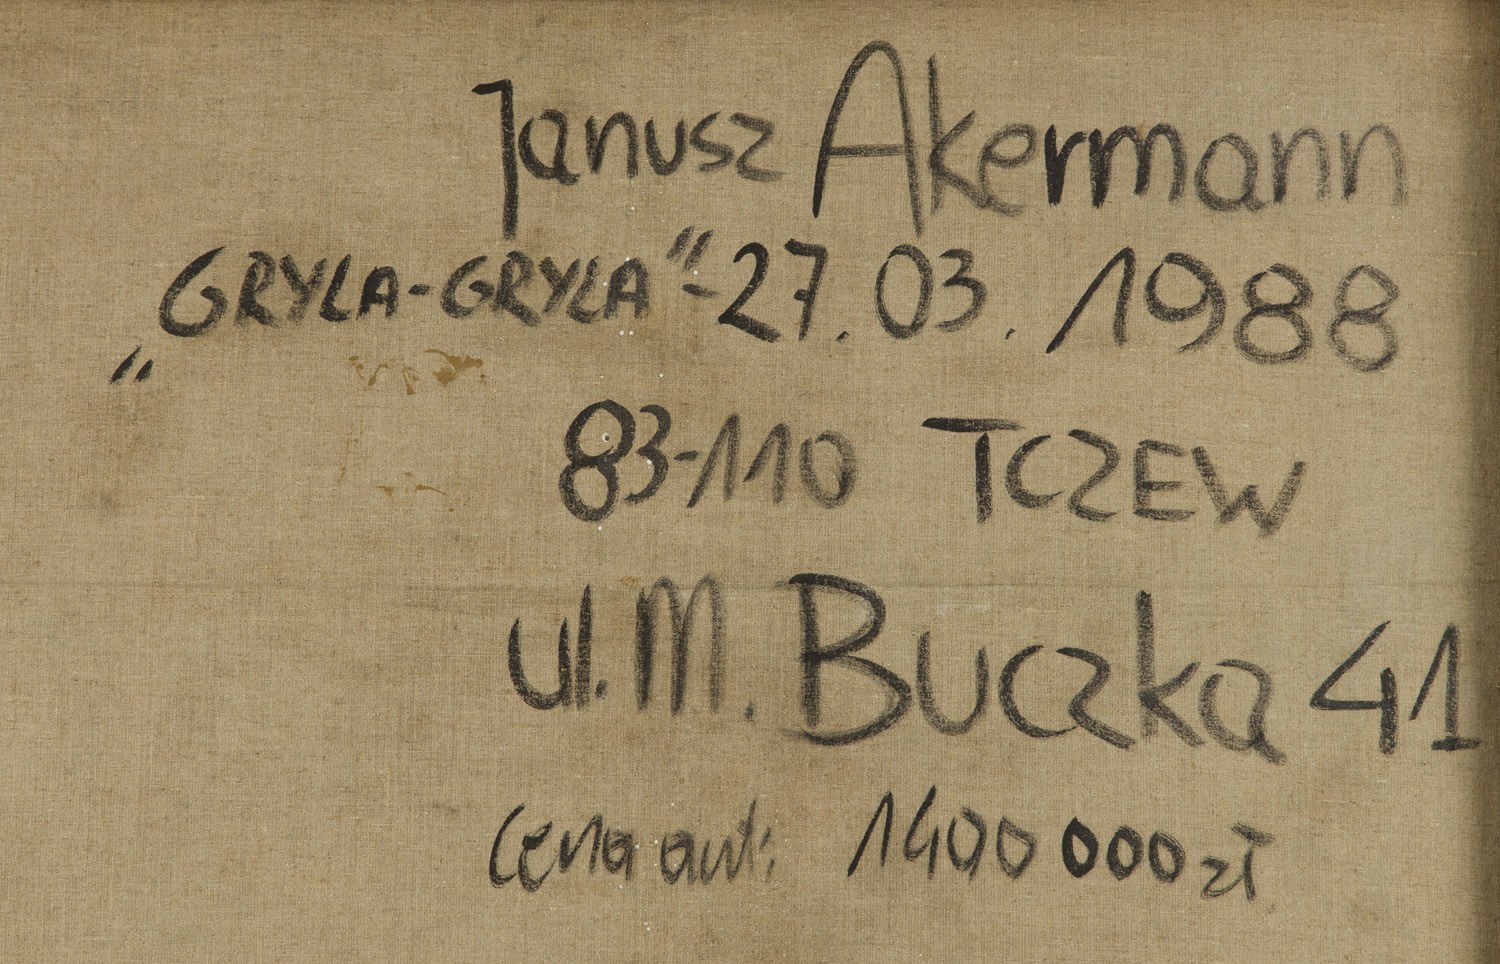 Janusz Akermann
„GRYLA-GRYLA"-27.03.1988
83-110 TCZEW
ul. M. Buczka 41
Cena aut: 1400 000 zł